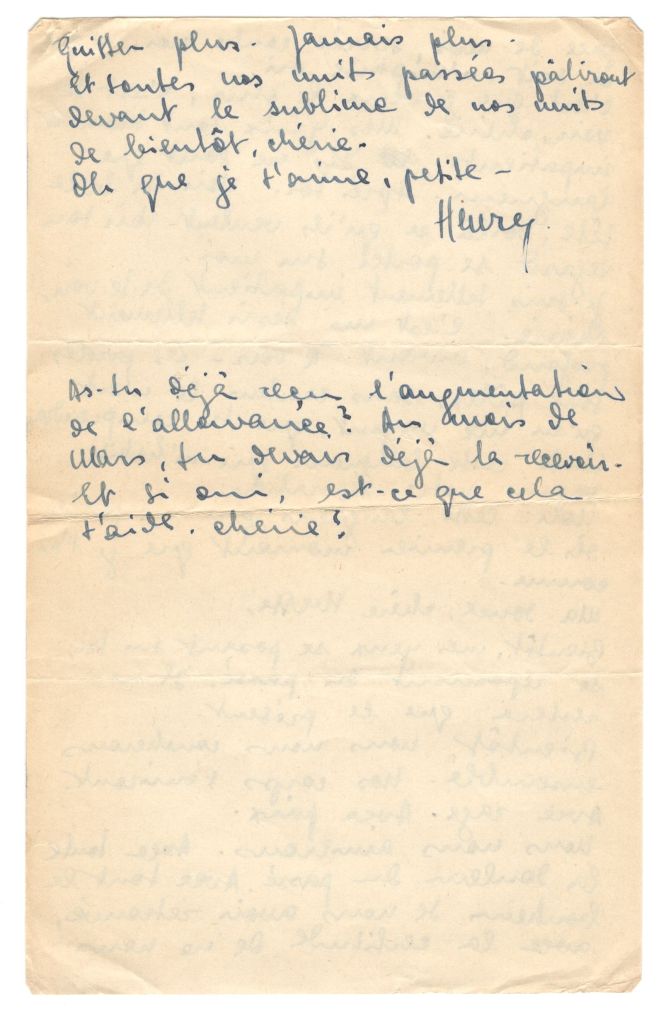 quitter plus. Jamais plus.
Et toutes nos nuits passées pâliront
devant le sublime de nos nuits
de bientôt, chérie.
Oh que je t'aime, petite –
Henry.
As-tu déjà reçu l'augmentation
de l'allowance? Au mois de
Mars, tu devais déjà la recevoir.
Et si oui, est-ce que cela
t'aide, chérie?